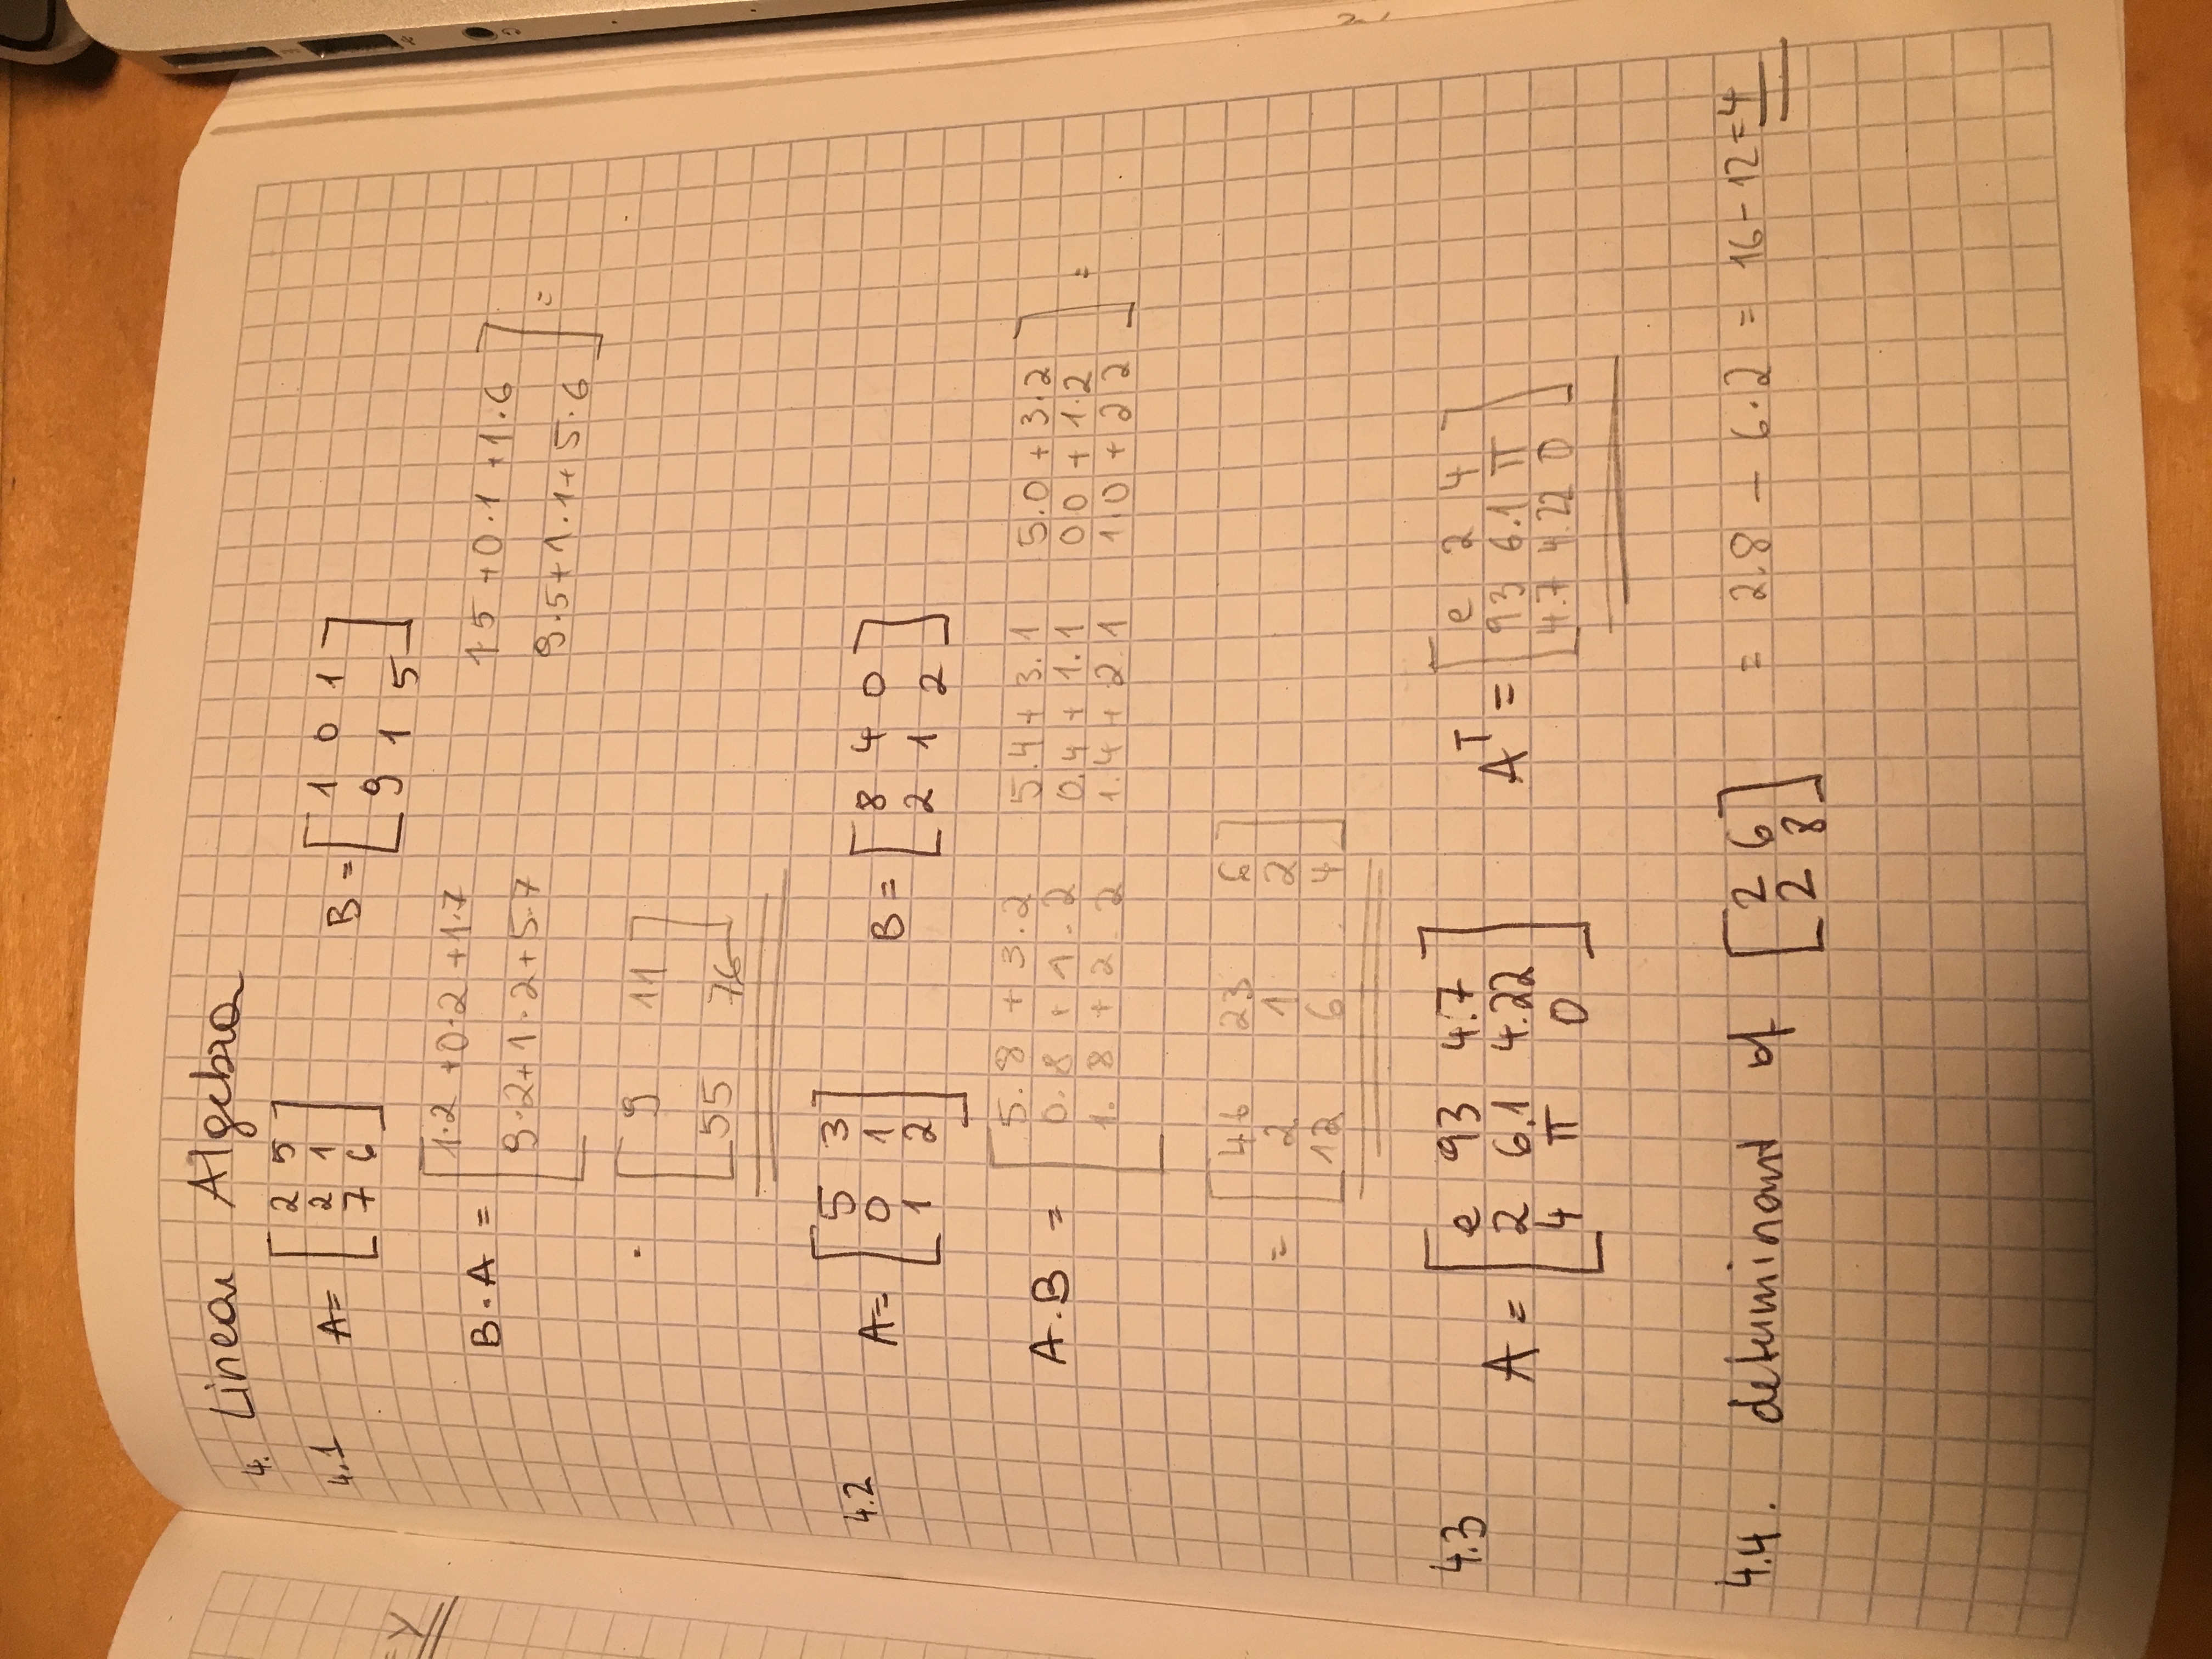 =Y
4. Linear Algebra
4.1 A= [2 5
2 1
7 6] B = [1 0 1
9 1 5]
B·A = [1·2 +0·2 +1·7 1·5 +0·1 +1·6
9·2+1·2+5·7 9·5+1·1+5·6] =
[9 11
55 76]
4.2 A= [5 3
0 1
1 2] B = [8 4 0
2 1 2]
A·B = [5·8 + 3·2 5·4 + 3·1 5·0 + 3·2
0·8 + 1·2 0·4 + 1·1 0 0 + 1·2
1·8 + 2 2 1·4 + 2 1 1·0 + 2 2] =
= [46 23 6
2 1 2
12 6 4]
4.3 A = [e 93 4.7
2 6.1 4.22
4 π 0] Aᵀ = [e 2 4
93 6.1 π
4.7 4.22 0]
4.4. determinant of [2 6
2 8] = 2·8 − 6·2 = 16−12=4